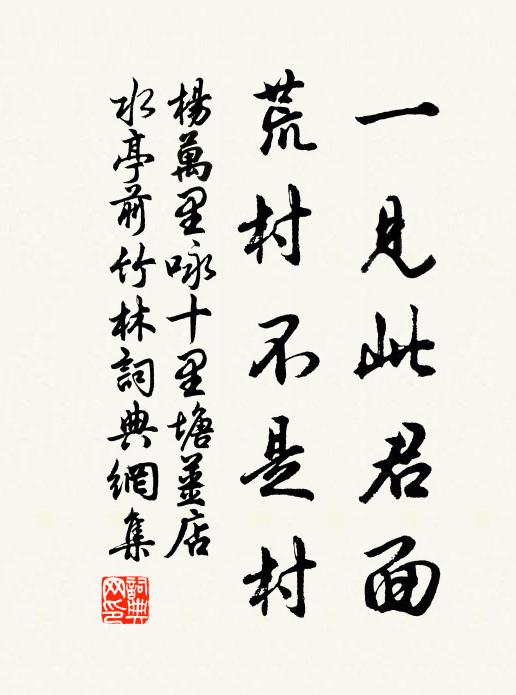 一見此君面
荒村不是村
楊萬里咏十里塘薑店
水亭前竹林詞典網集
詞典網印